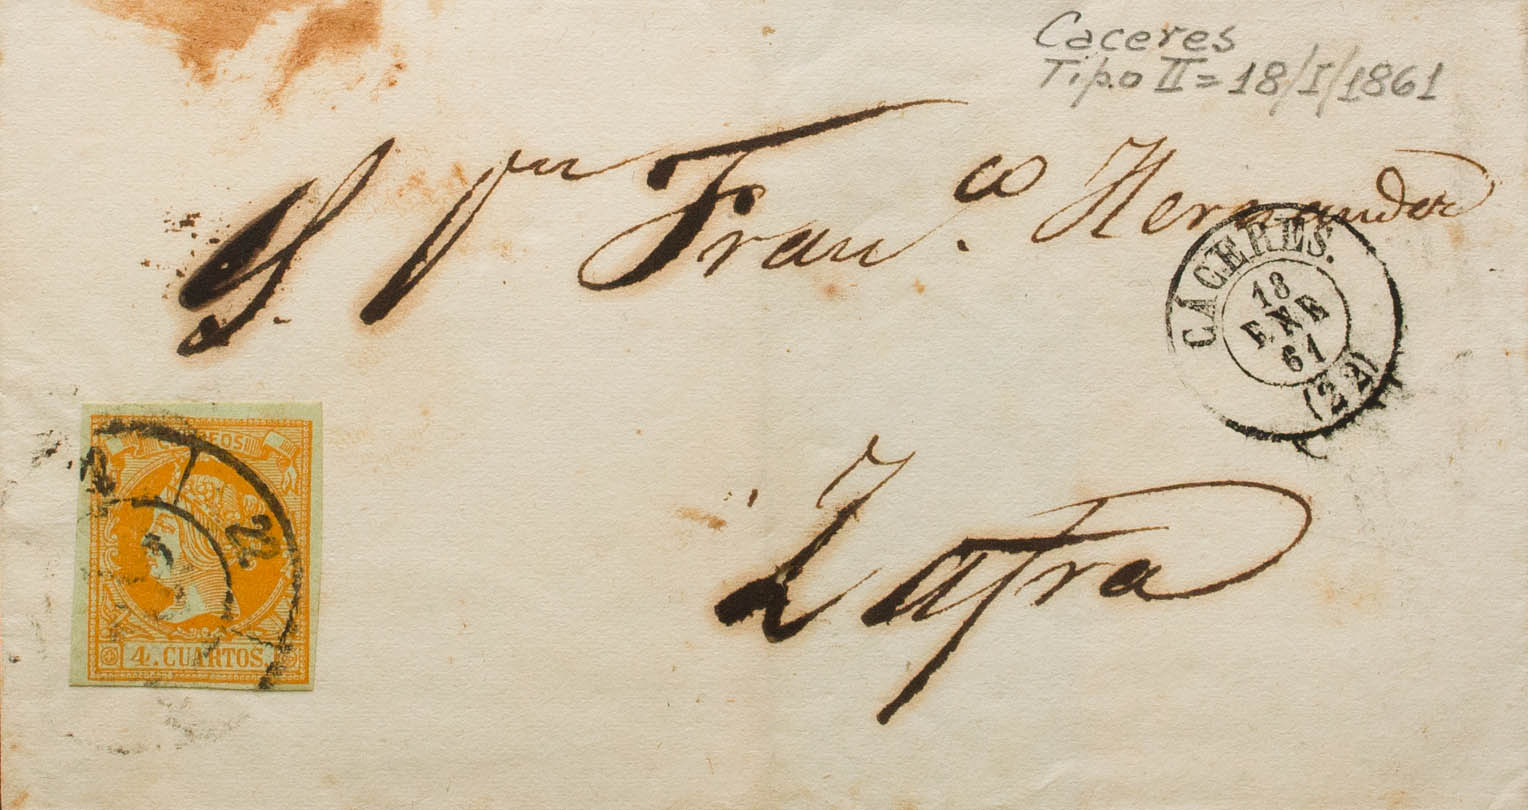 Caceres
Tipo II = 18/I/1861
S. Dn Franco. Hernandez
CÁCERES.
18
ENE
61
(22)
Zafra
CORREOS
22
4. CUARTOS.